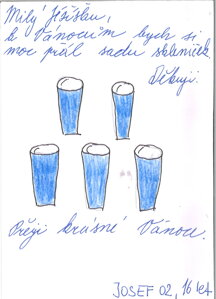 Milý Ježíšku,
k Vánocům bych si
moc přál sadu skleniček.
Děkuji.
Přeji krásné Vánoce.
JOSEF 02, 16 let